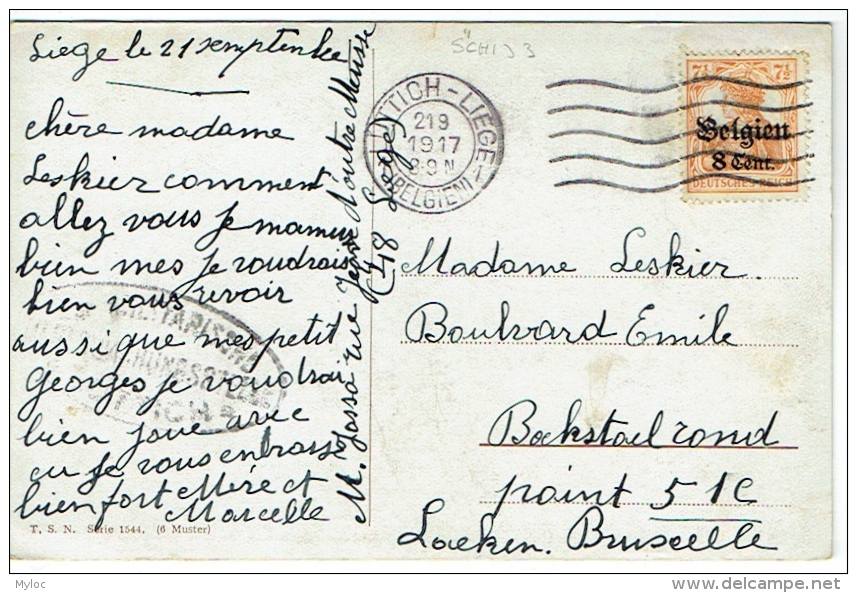 Liege le 21 semptenbre
chère madame
Leskier comment
allez vous je
bien mes je voudrais
bien vous revoir
aussi que mes petit
Georges je voudrais
bien joue avec
je vous enbrasse
bien fort Mère et
Marcelle
T. S. N. Série 1544. (6 Muster)
rue d'outre Meuse
48 Liege
SCHIJ 3
LÜTTICH-LIEGE 1
219
1917
8-9 N
(BELGIEN)
7½ 7½
Belgien
8 Cent.
DEUTSCHES REICH
MILITÄRISCHE
ÜBERWACHUNGSSTELLE
LÜTTICH
Madame Leskier.
Boulvard Emile
Bockstael rond
point 51c
Laeken. Bruxelle
Myloc
delcampe.net